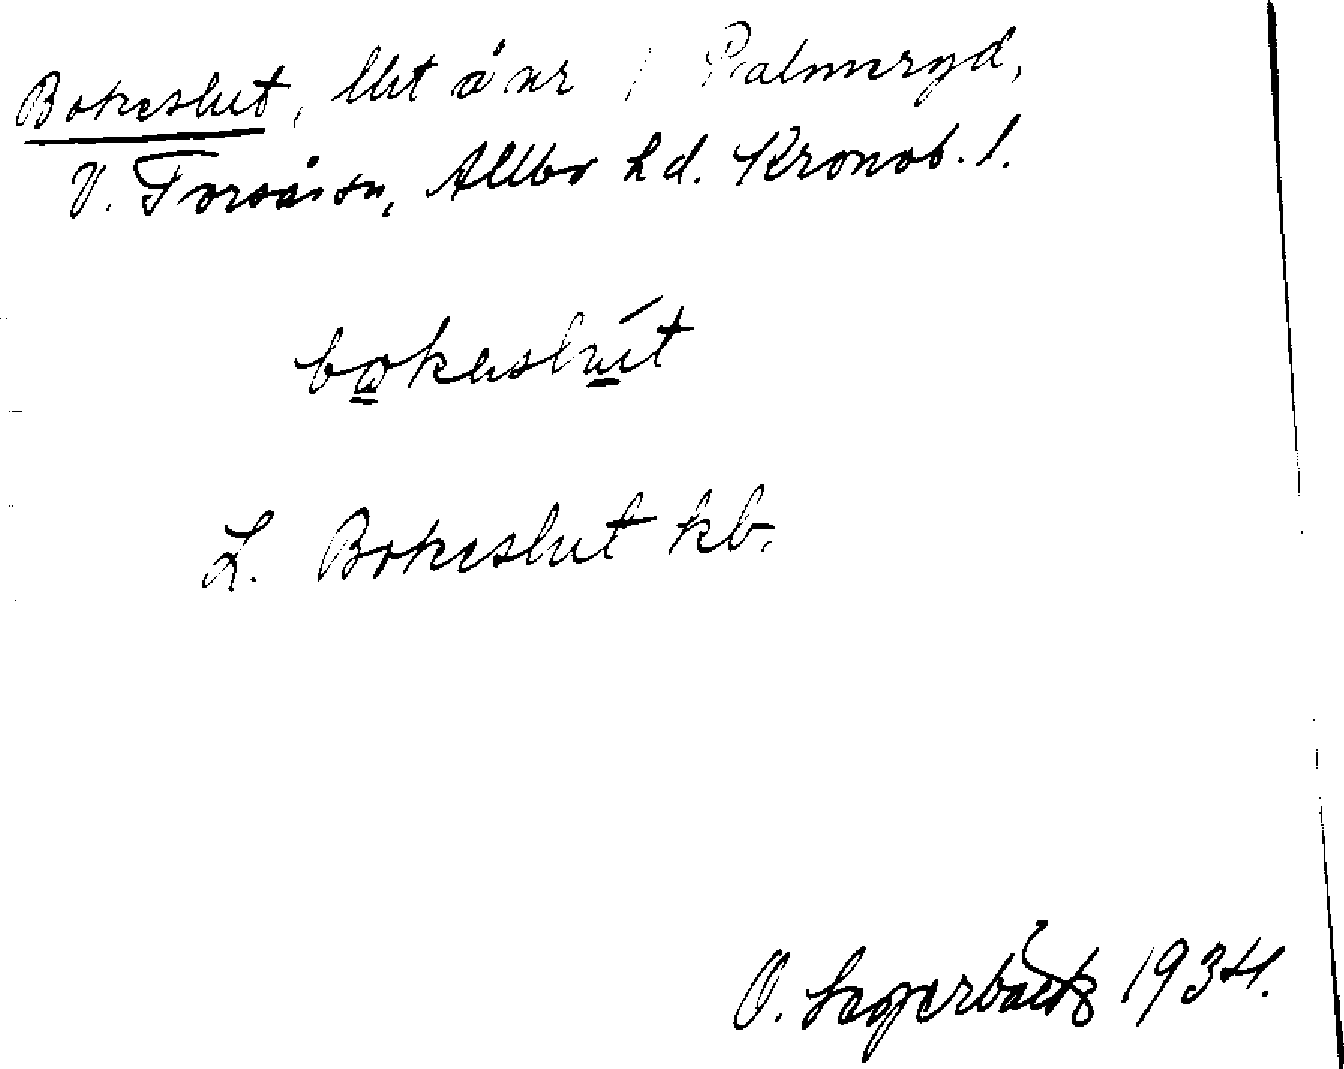 Bokeslut, litet åker i Palmeryd,
V. Torsås sn, Allbo hd. Kronob. l.
bokeslut
L. Bokeslut kb.
O. Lagerbäck 1934.